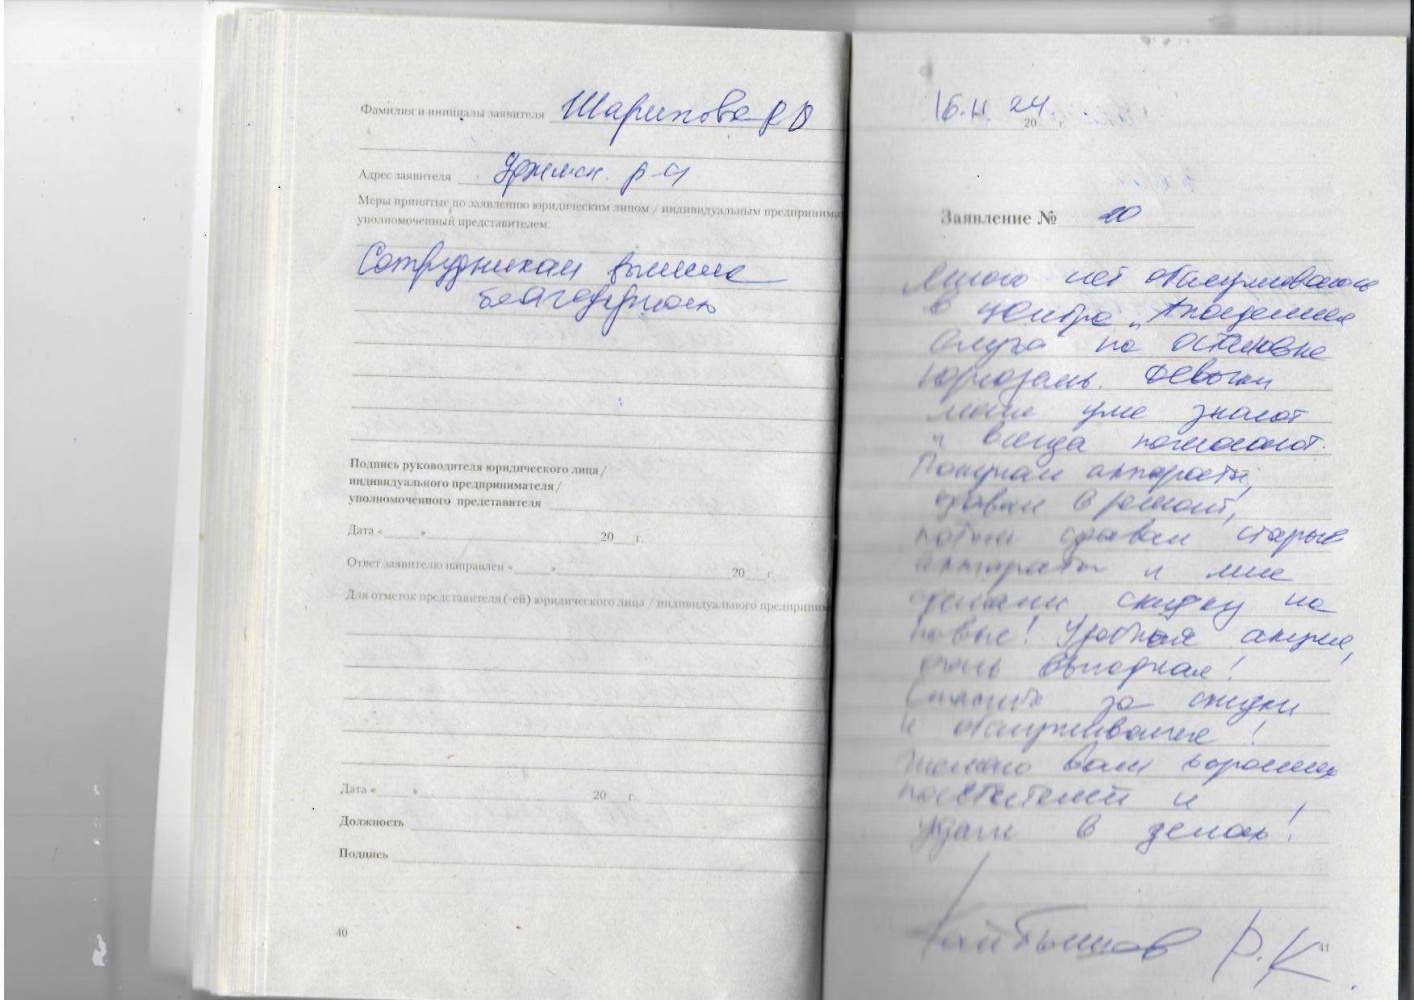 Фамилия и инициалы заявителя Шарипова
Адрес заявителя р-н
Меры принятые по заявлению юридическим лицом / индивидуальным
уполномоченный представителем:
Сотрудникам
благодарность
Подпись руководителя юридического лица /
индивидуального предпринимателя /
уполномоченного представителя
Дата « » 20 г.
Ответ заявителю направлен « » 20 г.
Для отметок представителя (-ей) юридического лица / индивидуального
Дата « » 20 г.
Должность
Подпись
40
16.11. 24
20
Заявление № 20
Много лет обслуживаюсь
в центре "Академия
Слуха на остановке
Девочки
меня уже знают
и всегда помогают.
Покупал аппараты,
сдавал в ремонт,
потом сдавал старые
аппараты и мне
сделали скидку на
новые! Удобная акция,
очень выгодная!
Спасибо за скидки
и обслуживание!
Желаю Вам хороших
посетителей и
удачи в делах!
Р.К.
41